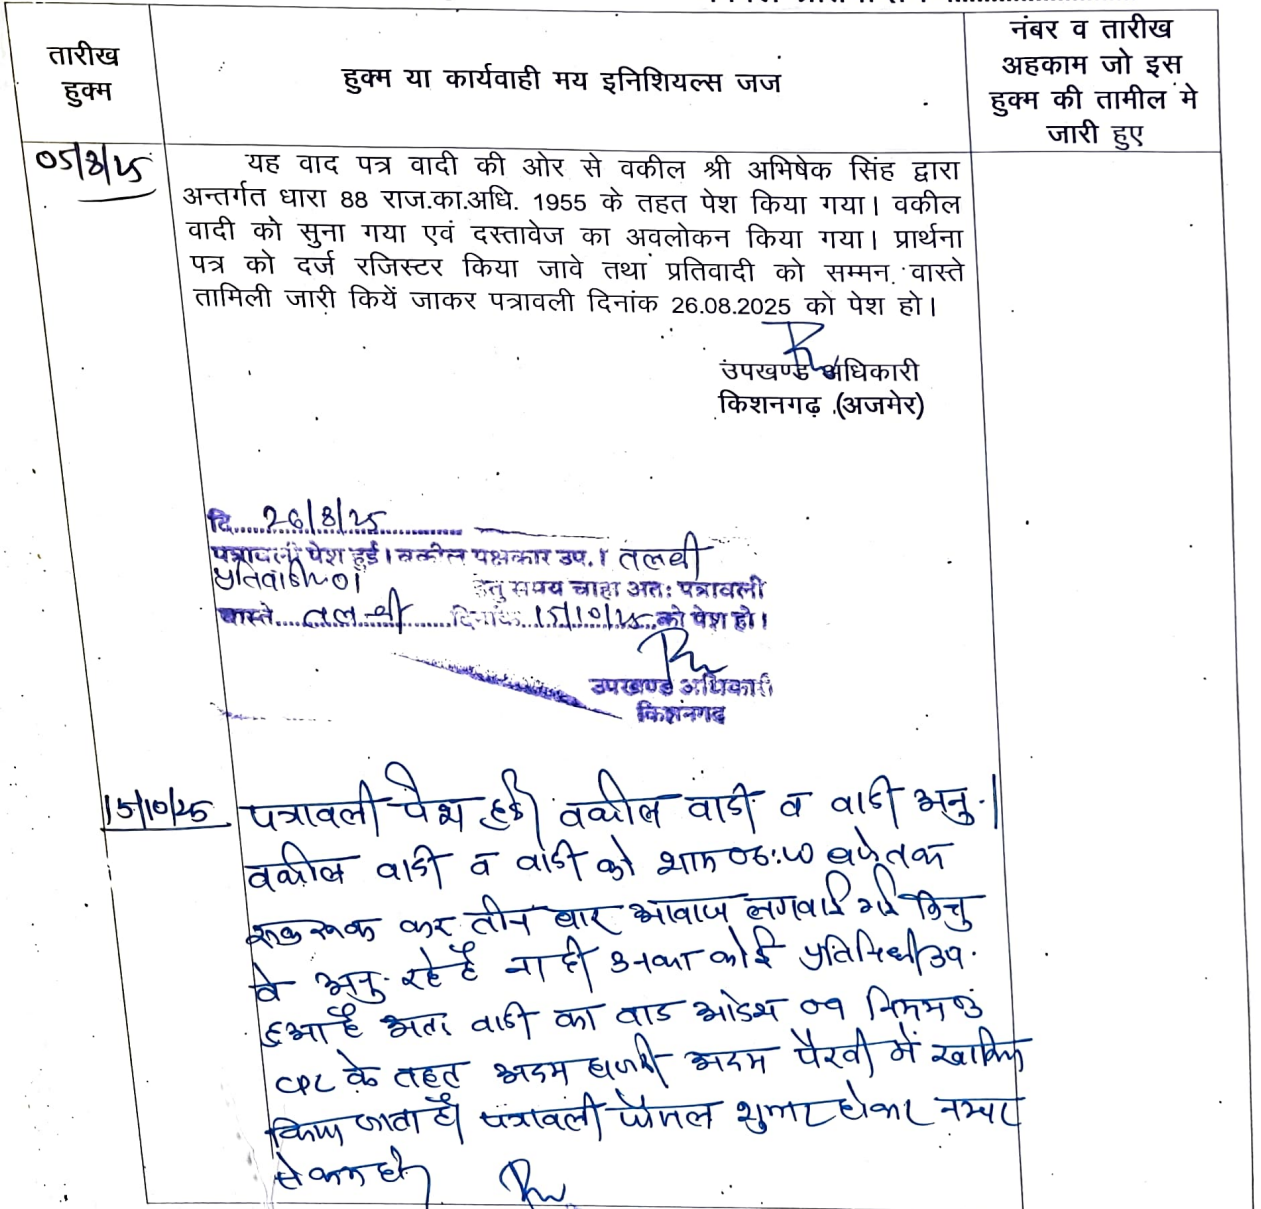 तारीख
हुक्म
हुक्म या कार्यवाही मय इनिशियल्स जज
नंबर व तारीख
अहकाम जो इस
हुक्म की तामील मे
जारी हुए
05/8/25
यह वाद पत्र वादी की ओर से वकील श्री अभिषेक सिंह द्वारा
अन्तर्गत धारा 88 राज.का.अधि. 1955 के तहत पेश किया गया। वकील
वादी को सुना गया एवं दस्तावेज का अवलोकन किया गया। प्रार्थना
पत्र को दर्ज रजिस्टर किया जावे तथा प्रतिवादी को सम्मन वास्ते
तामिली जारी कियें जाकर पत्रावली दिनांक 26.08.2025 को पेश हो।
उपखण्ड अधिकारी
किशनगढ़ (अजमेर)
दि. 26/8/25
पत्रावली पेश हुई। वकील पक्षकार उप.। तलबी
हेतु समय चाहा अतः पत्रावली
वास्ते तलबी दिनांक 15/10/25 को पेश हो।
उपखण्ड अधिकारी
किशनगढ़
15/10/25
पत्रावली पेश हुई। वकील वादी व वादी अनु.।
वकील वादी व वादी को शाम 06:00 बजे तक
रूक रूक कर तीन बार आवाज लगवाई गई किन्तु
वे अनु. रहे है ना ही उनका कोई प्रतिनिधी उप.
हुआ है अतः वादी का वाद आदेश 09 नियम 03
CPC के तहत अदम हाजरी अदम पैरवी में खारिज
किया जाता है। पत्रावली फैसल शुमार होकर नम्बर
से कम हो।